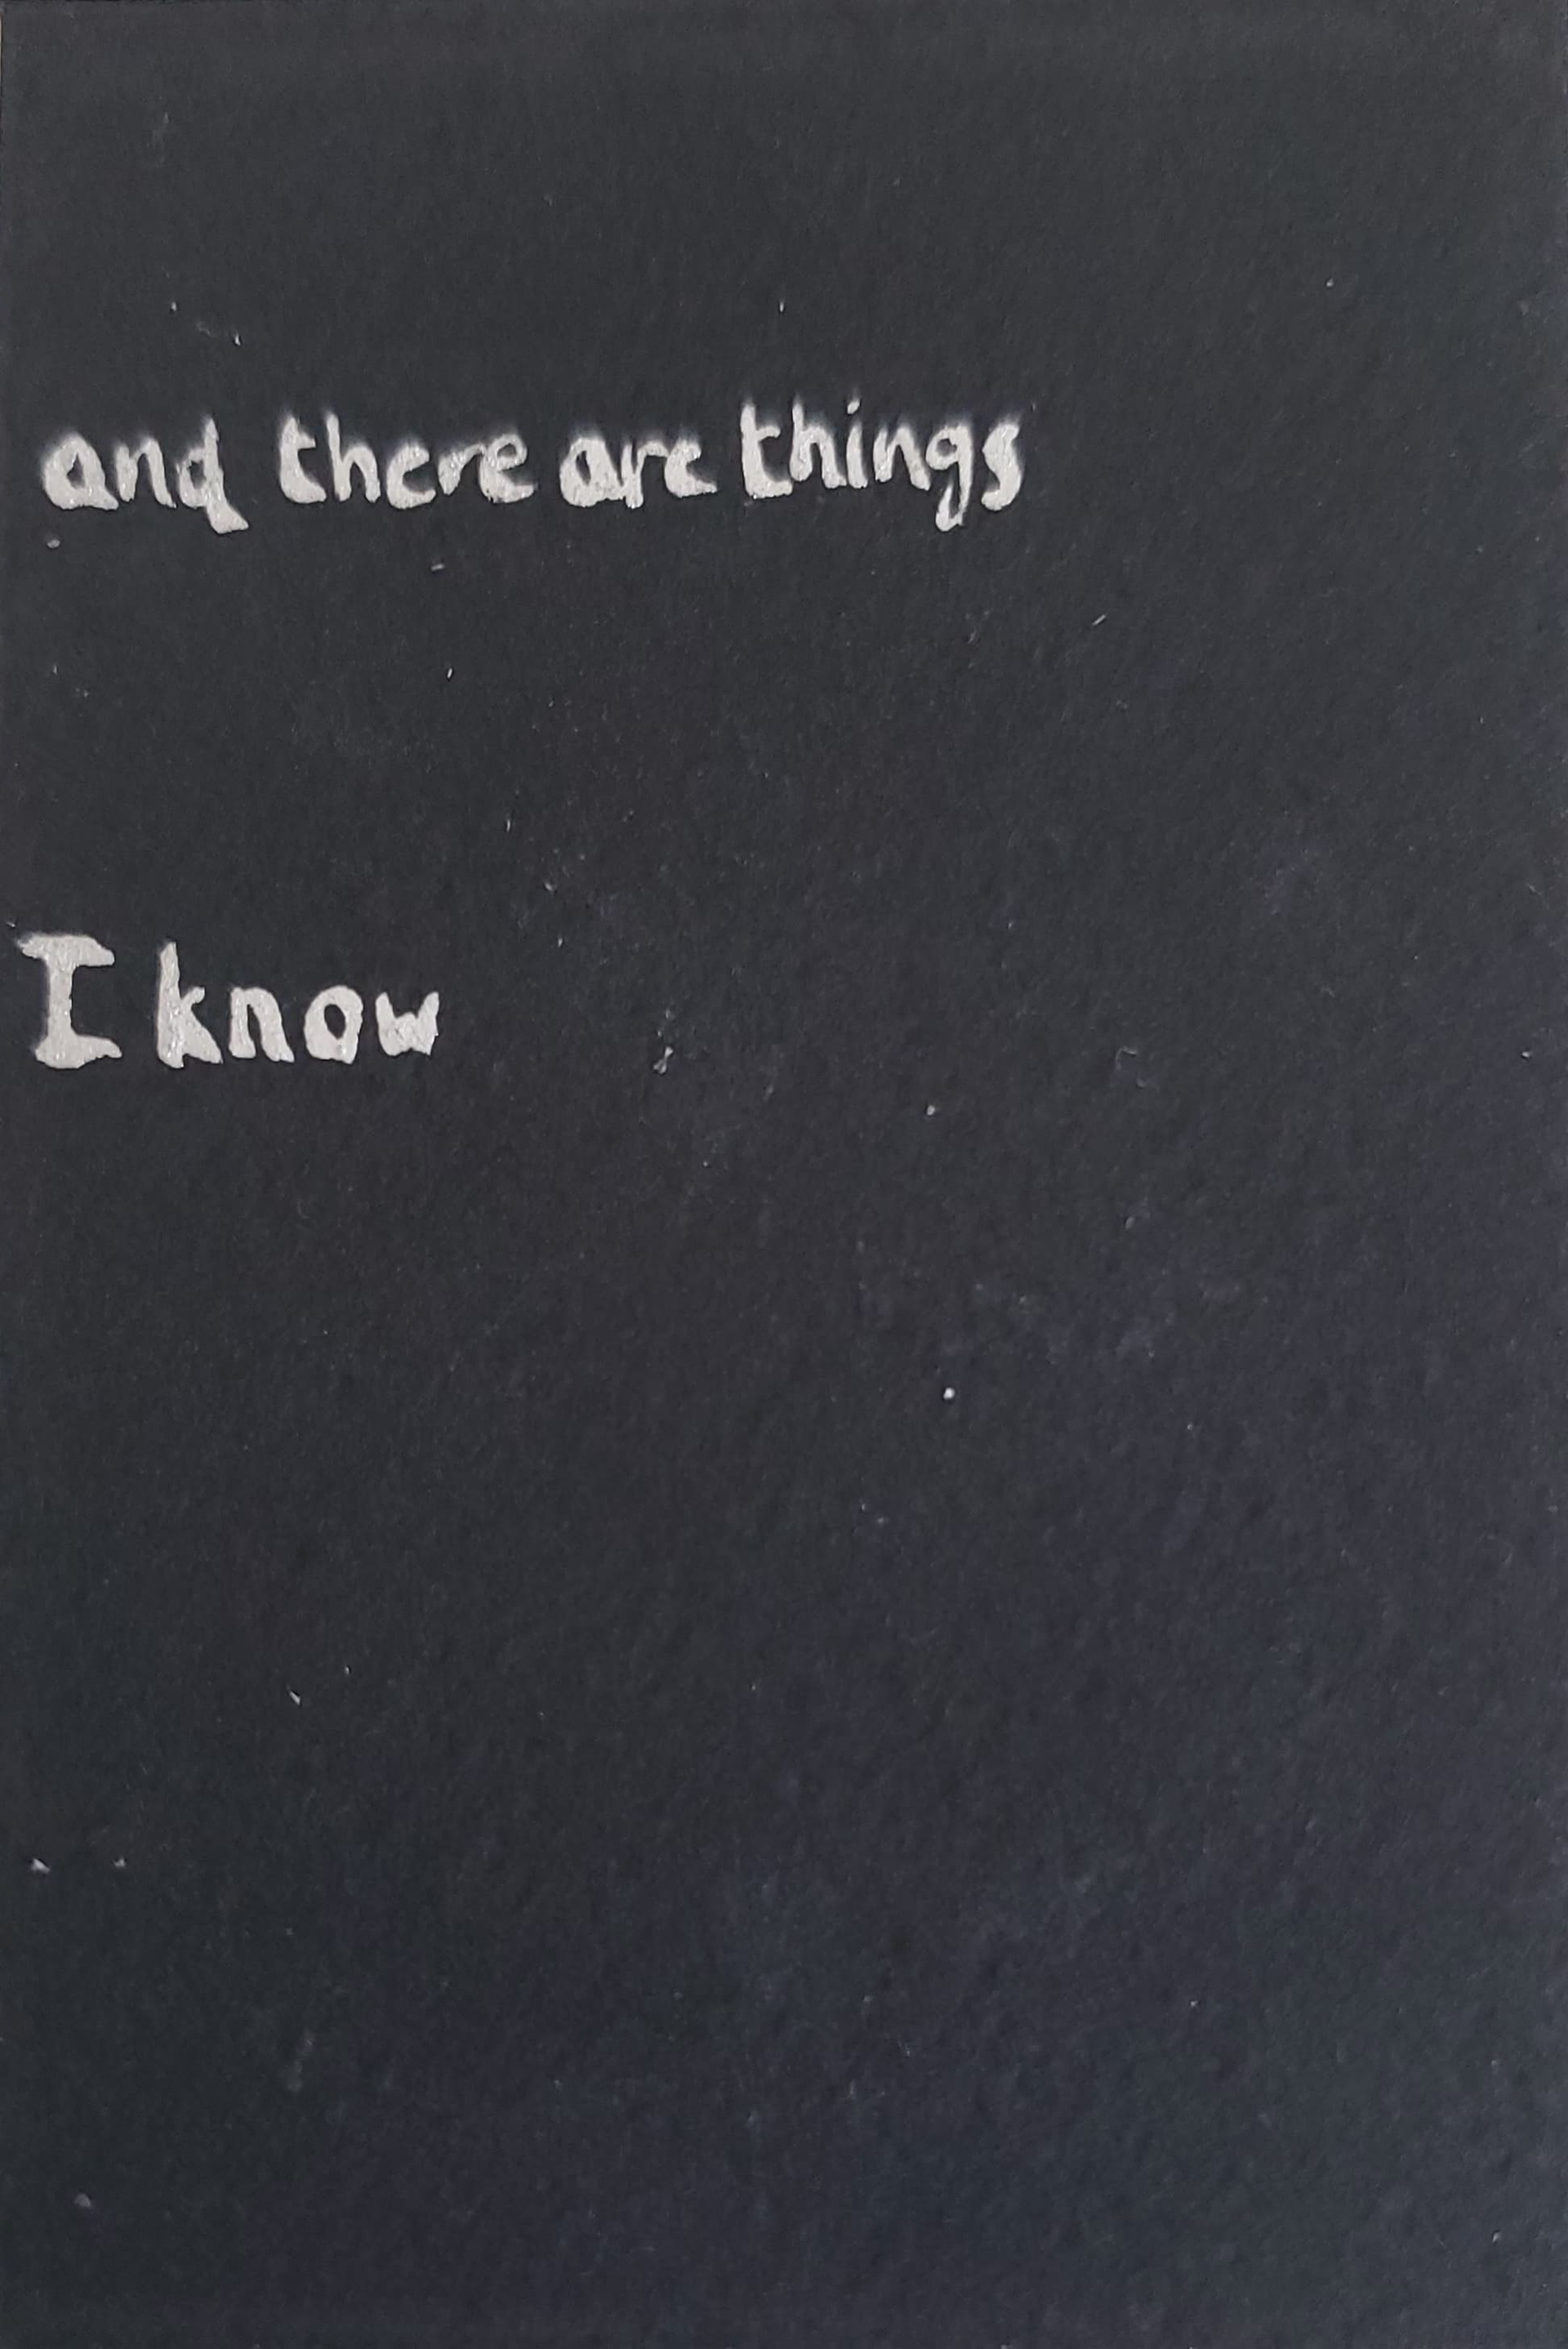 and there are things
I know